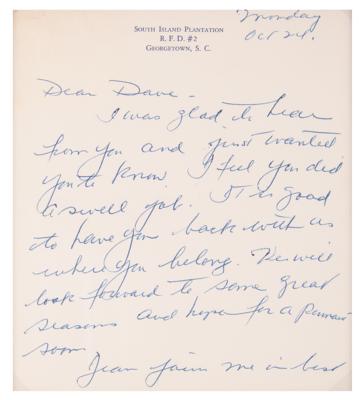 South Island Plantation
R. F. D. #2
Georgetown, S. C.
Monday
Oct 24.
Dear Dave -
I was glad to hear
from you and just wanted
you to know I feel you did
a swell job. It is good
to have you back with us
where you belong. We will
look forward to some great
seasons and hope for a pennant
soon.
Jean joins me in best